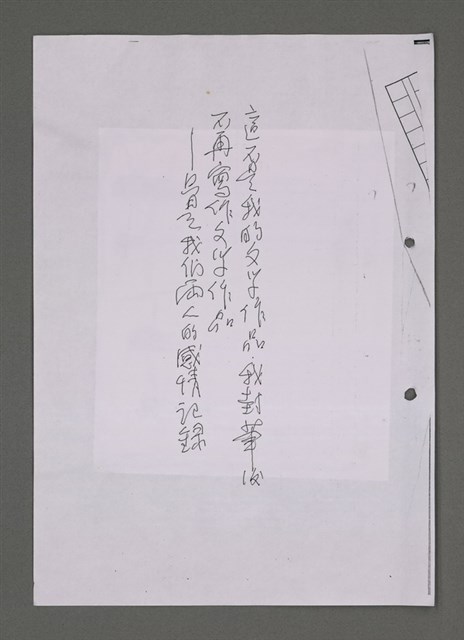 這不是我的文學作品,我封筆後
不再寫作文學作品
—只是我們兩人的感情記錄